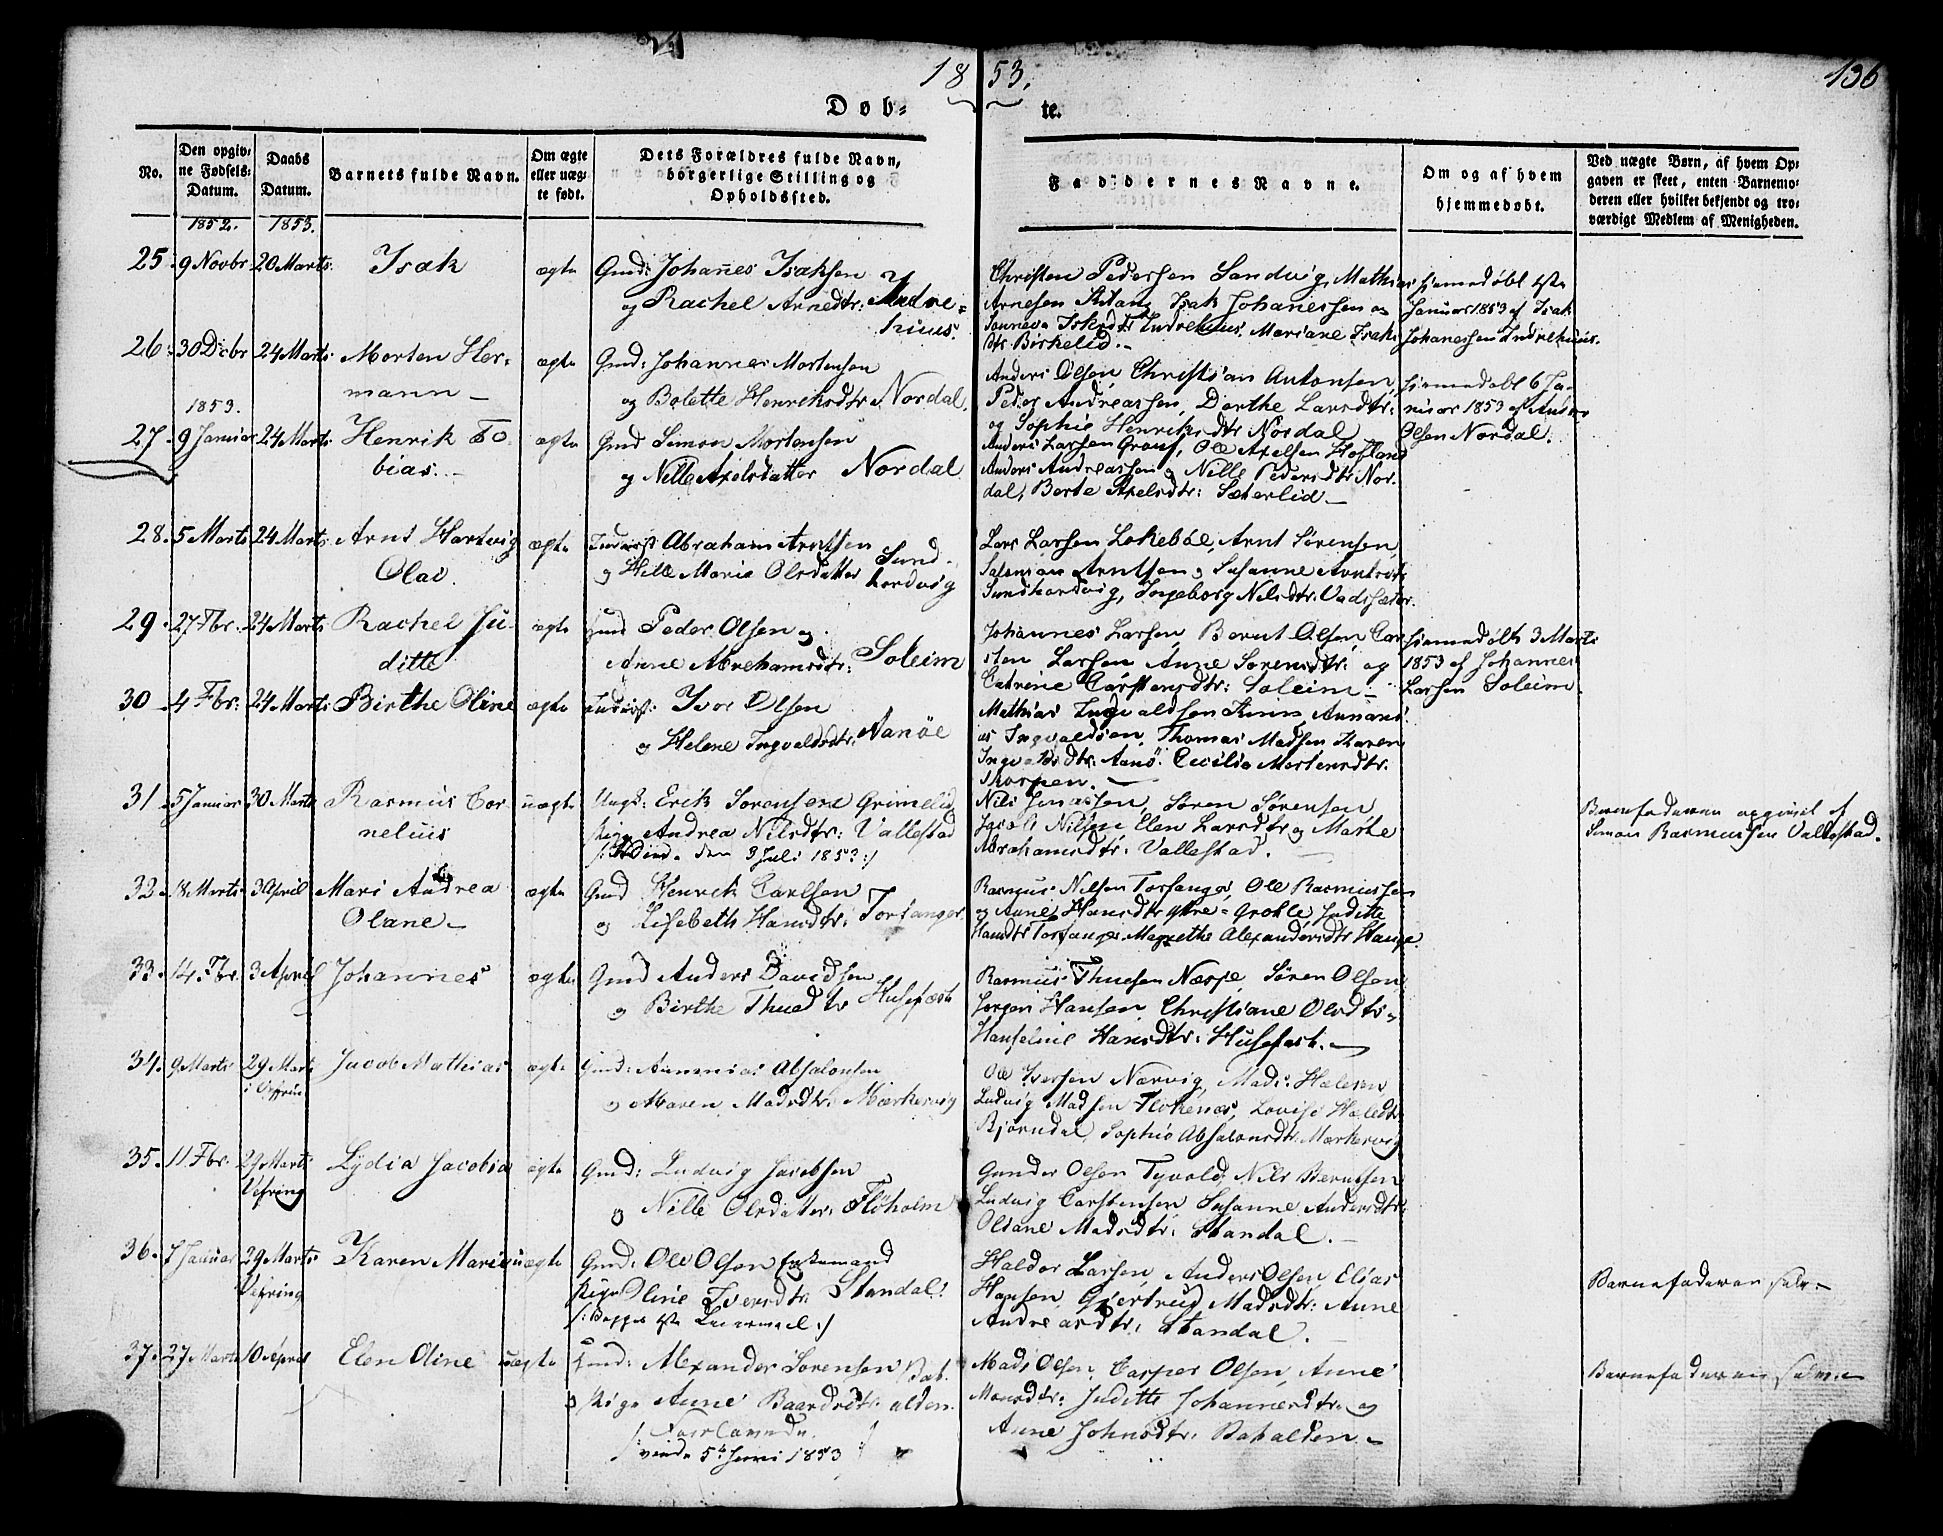 18 53.
136
Døb- te.
No.
Den opgiv-
ne Fødsels-
Datum.
Daabs
Datum.
Barnets fulde Navn.
Om ægte
eller uæg-
te født.
Dets Forældres fulde Navn,
borgerlige Stilling og
Opholdssted.
Faddernes Navne.
Om og af hvem
hjemmedøbt.
Ved uægte Børn, af hvem Op-
gaven er skeet, enten Barnemo-
deren eller hvilket bekjendt og tro-
værdigt Medlem af Menigheden.
1852. 1853.
25. 9 Novbr. 20 Marts Isak ægte Gmd: Johanes Isaksen
og Rachel Arnedtr: Indre-
huus.
Christen Pedersen Sandvig, Mathias
Arnesen Isak Johanessen og
Indrehuus. Mariane Isak-
dtr Birkelid.-
hjemmedøbt 1ste
Januar 1853 af Isak
Johanessen Indrehuus.
26. 30 Decbr 24 Marts Morten Her-
mann - ægte Gmd: Johannes Mortensen
og Bolette Henriksdtr. Nordal.
Anders Olsen, Christian Antonsen,
Peder Andreassen, Dorthe Larsdtr:
og Sophie Henriksdtr Nordal
hjemmedøbt 6 Ja-
nuar 1853 af Anders
Olsen Nordal.
1853.
27. 9 Januar 24 Marts Henrik To-
bias. - ægte Gmd Simon Mortensen
og Nille Axelsdatter Nordal
Anders Larsen Ole Axelsen Hofland
Anders Andreassen og Nille Pedersdtr Nor-
dal, Berte Axelsdtr: Sæterlid -
28. 5 Marts 24 Marts Arnt Hartvig
Olai. ægte Inderst Abraham Arntsen
og Hille Maria Olsdatter Sund-
hordvig
Lars Larsen Løkebøe, Arnt Sørensen,
Salomon Arntsen og Susanne Arntsdtr
Sundhordvig, Ingeborg Nilsdtr. Vadsæter.
29. 27 Fbr. 24 Marts Rachel Ju-
ditte ægte Gmd Peder Olsen og
Anne Abrahamsdtr: Soleim
Johannes Larsen, Bernt Olsen, Car-
sten Larsen Anne Sørensdtr: og
Catrine Carstensdtr: Soleim -
hjemmedøbt 3 Marts
1853 af Johannes
Larsen Soleim
30 4 Fbr: 24 Marts Birthe Oline ægte Inderst: Iver Olsen
og Helene Ingvaldsdtr: Aanøe
Mathias Ingvaldsen Annani-
as Ingvaldsen, Thomas Madsen Karen
Ingvaldsdtr. Aanø. Cecilia Mortensdtr:
Thorpen. -
31. 5 Januar 30 Marts Rasmus Cor-
nelius uægte Ungk: Erik Sørensen Grimelid
Pige Andrea Nilsdtr: Vallestad
den 3 Juli 1853 :/
Nils Jonassen, Søren Sørensen
Jacob Nilsen Elen Larsdtr og Marthe
Abrahamsdtr: Vallestad. -
Barnefaderen opgivet af
Simon Rasmussen Vallestad.
32. 18 Marts 3 April Mari Andrea
Olane - ægte Gmd Henrik Carlsen
og Lisebeth Hansdtr: Torsanger.
Rasmus Nilsen Torsanger, Ole Rasmussen
og Anne Hansdtr Ytre-Grohle, Juditte
Hansdtr Torsanger Magrethe Alexandersdtr Hauge
33. 14 Fbr. 3 April Johannes ægte Gmd Anders Davidsen
og Birthe Thuedtr Husefæst
Rasmus Thuesen Næspe, Søren Olsen
Jørgen Hansen, Christiane Olsdtr
Hanseline Hansdtr: Husefest. -
34. 9 Marts 29 Marts
i Vefring Jacob Mathias ægte Gmd: Annanias Absalonsen
og Maren Madsdtr: Mærkevig
Ole Iversen Nærvig, Mads Halsen,
Ludvig Madsen Flokenæs, Lovise
Bjørndal, Sophie Absalonsdtr: Mærkevig
35. 11 Fbr. 29 Marts
Vefring Lydia Jacobia ægte Gmd: Ludvig Jacobsen
og Nille Olsdatter: Fløholm
Gunder Olsen Tyvold, Nils Berntsen
Ludvig Carstensen, Susanne Andersdtr:
Oldane Madsdtr: Standal. -
36. 7 Januar 29 Marts
Vefring Karen Marie uægte Gmd: Ole Olsen Enkemand
Pige Oline Iversdtr: Standal:
/: Begges 1ste Leiermaal :/
Haldor Larsen, Anders Olsen, Elias
Hansen, Gjertrud Madsdtr: Anne
Andreasdtr: Standal. -
Barnefaderen selv -
37. 27 Marts 10 April Elen Oline uægte Gmd: Alexander Sørensen Bak-
og Pige Anne Baardsdtr: alden
/: viede 5te Juni 1853 :/
Mads Olsen, Casper Olsen, Anne
Monsdtr: Juditte Johannesdtr: og
Anne Johnsdtr: Bakalden -
Barnefaderen